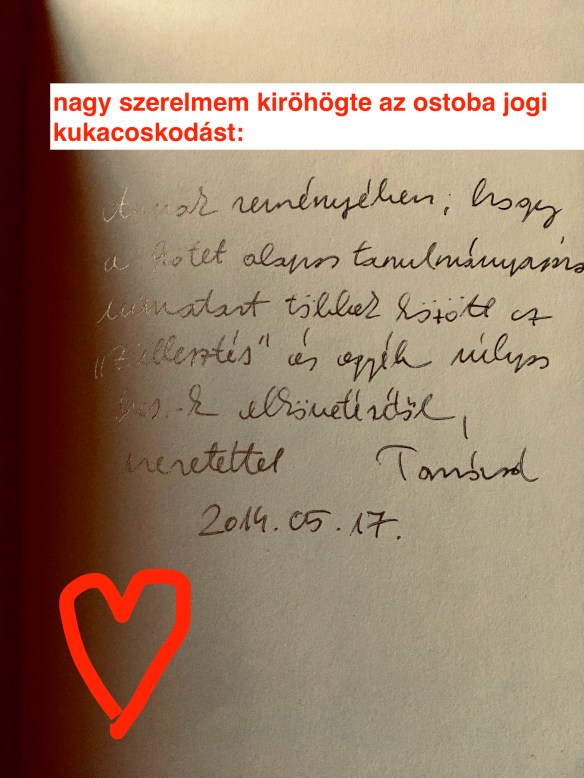 nagy szerelmem kiröhögte az ostoba jogi
kukacoskodást:
Annak reményében, hogy
a kötet alapos tanulmányozása
többek között az
és egyéb súlyos
elkövetésétől,
szeretettel
2014.05.17.